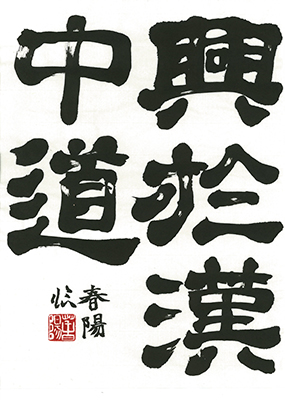 興於漢
中道
春陽
臨